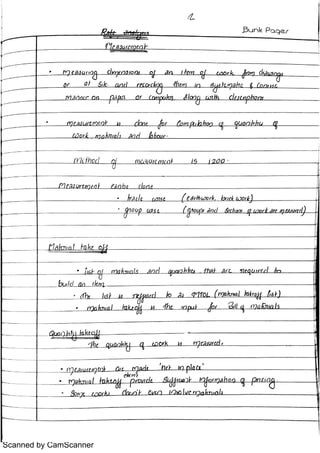 Junk Pages
Measurement
• Measuring dimensions of an item of work from drawings
or at site and recording them in systematic & concise
manner on paper or computer along with description.
• measurement is done for compilation of quantities of
work, materials and labour.
Method of measurement IS 1200.
Measurement can be done
• trade wise (earthwork, brick work)
• group wise (groups and sections of work are measured)
Material take off
• list of materials and quantities that are required to
build an item
• the list is referred to as MTOL (material takeoff list)
• material takeoff is the input for Bill of materials
Quantity takeoff
The quantity of work is measured.
• measurement are made 'net in place'
• material takeoff items provide sufficient information of pricing
• Some works don't even involve materials
Scanned by CamScanner